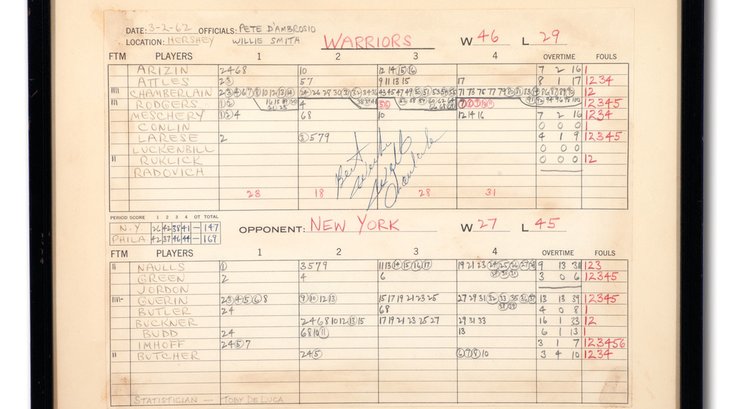 DATE: 3-2-62 OFFICIALS: PETE D'AMBROSIO
LOCATION: HERSHEY WILLIE SMITH WARRIORS W 46 L 29
FTM PLAYERS 1 2 3 4 OVERTIME FOULS
ARIZIN 2468 10 12 14 15 16 7 2 16
ATTLES 23 57 9 11 13 15 17 8 1 17 1234
CHAMBERLAIN 12
RODGERS 12 4 12345
MESCHERY 124 68 10 12 14 16 7 2 16 1234
CONLIN 0 0 0
LARESE 2 3579 4 1 9 12345
LUCKENBILL 0 0 0
RUKLICK 0 0 0 12
RADOVICH
Best Wishes
Wilt Chamberlain
28 18 28 31
PERIOD SCORE 1 2 3 4 OT TOTAL
N.Y 26 42 38 41 — 147
PHILA 42 37 46 44 — 169
OPPONENT: NEW YORK W 27 L 45
FTM PLAYERS 1 2 3 4 OVERTIME FOULS
NAULLS 1 3579 11 13 14 15 16 17 19 21 23 24 25 26 27 28 9 13 31 123
GREEN 2 4 6 3 0 6 12345
JORDON
GUERIN 2 3 4 5 6 8 9 10 12 13 15 17 19 21 23 25 27 29 31 32 33 13 13 39 12345
BUTLER 24 68 4 0 8 1
BUCKNER 2468 10 12 13 15 17 19 21 23 25 27 29 31 33 16 1 33 12
BUDD 24 68 10 11 13 6 1 13 1
IMHOFF 24 5 7 3 1 7 123456
BUTCHER 24 5 6 7 8 10 3 4 10 1234
STATISTICIAN — TOBY DE LUCA